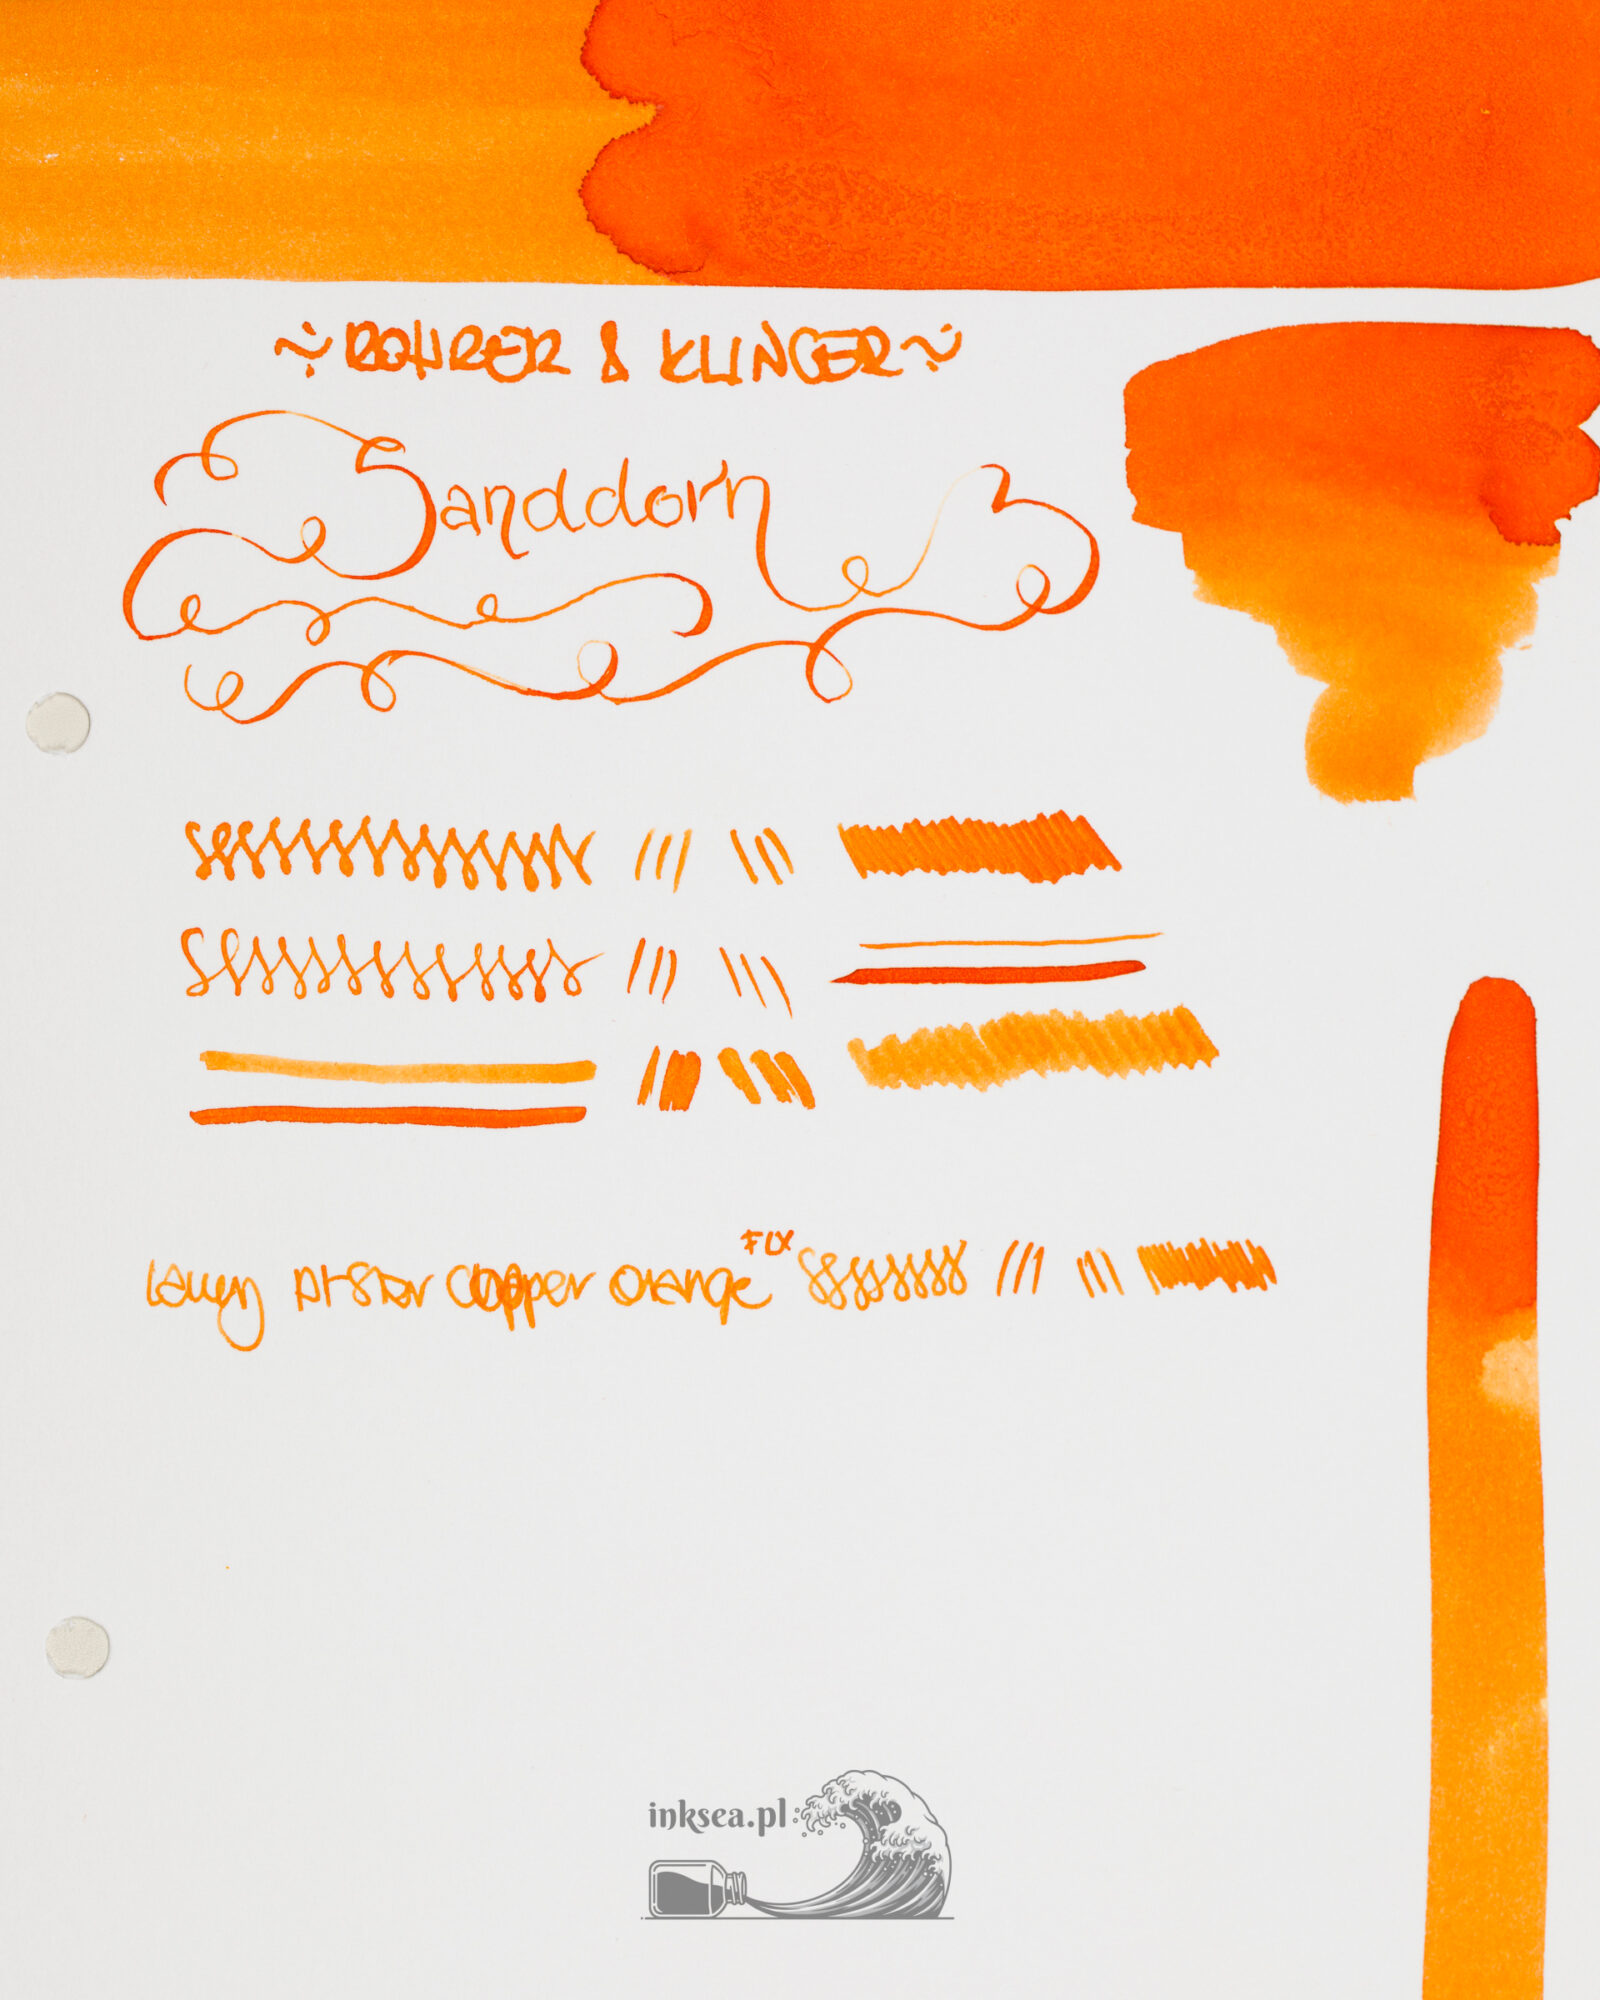 ~ROHRER & KLINGER~
Sanddorn
Lamy Al-Star Copper Orange
inksea.pl